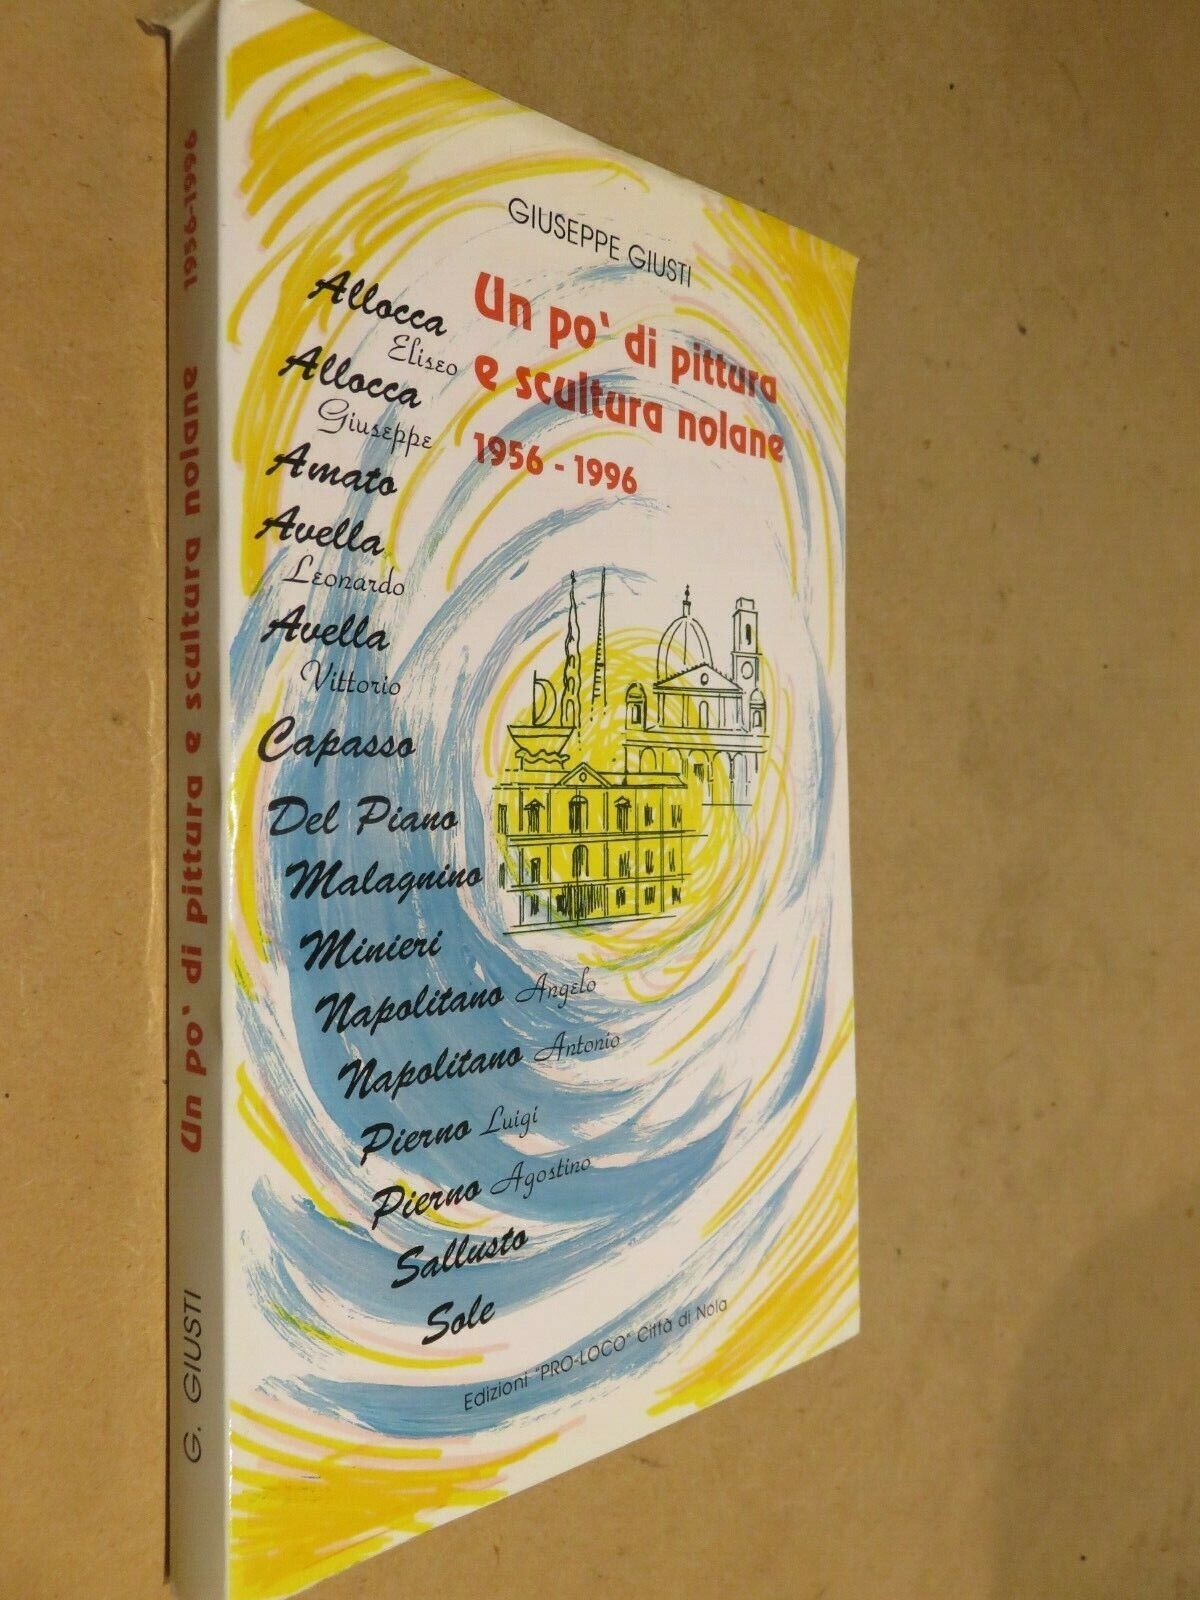 GIUSEPPE GIUSTI
Un po' di pittura
e scultura nolane
1956 - 1996
Allocca
Eliseo
Allocca
Giuseppe
Amato
Avella
Leonardo
Avella
Vittorio
Capasso
Del Piano
Malagnino
Minieri
Napolitano Angelo
Napolitano Antonio
Pierno Luigi
Pierno Agostino
Sallusto
Sole
Edizioni "PRO-LOCO" Città di Nola
G. GIUSTI Un po' di pittura e scultura nolane 1956-1996